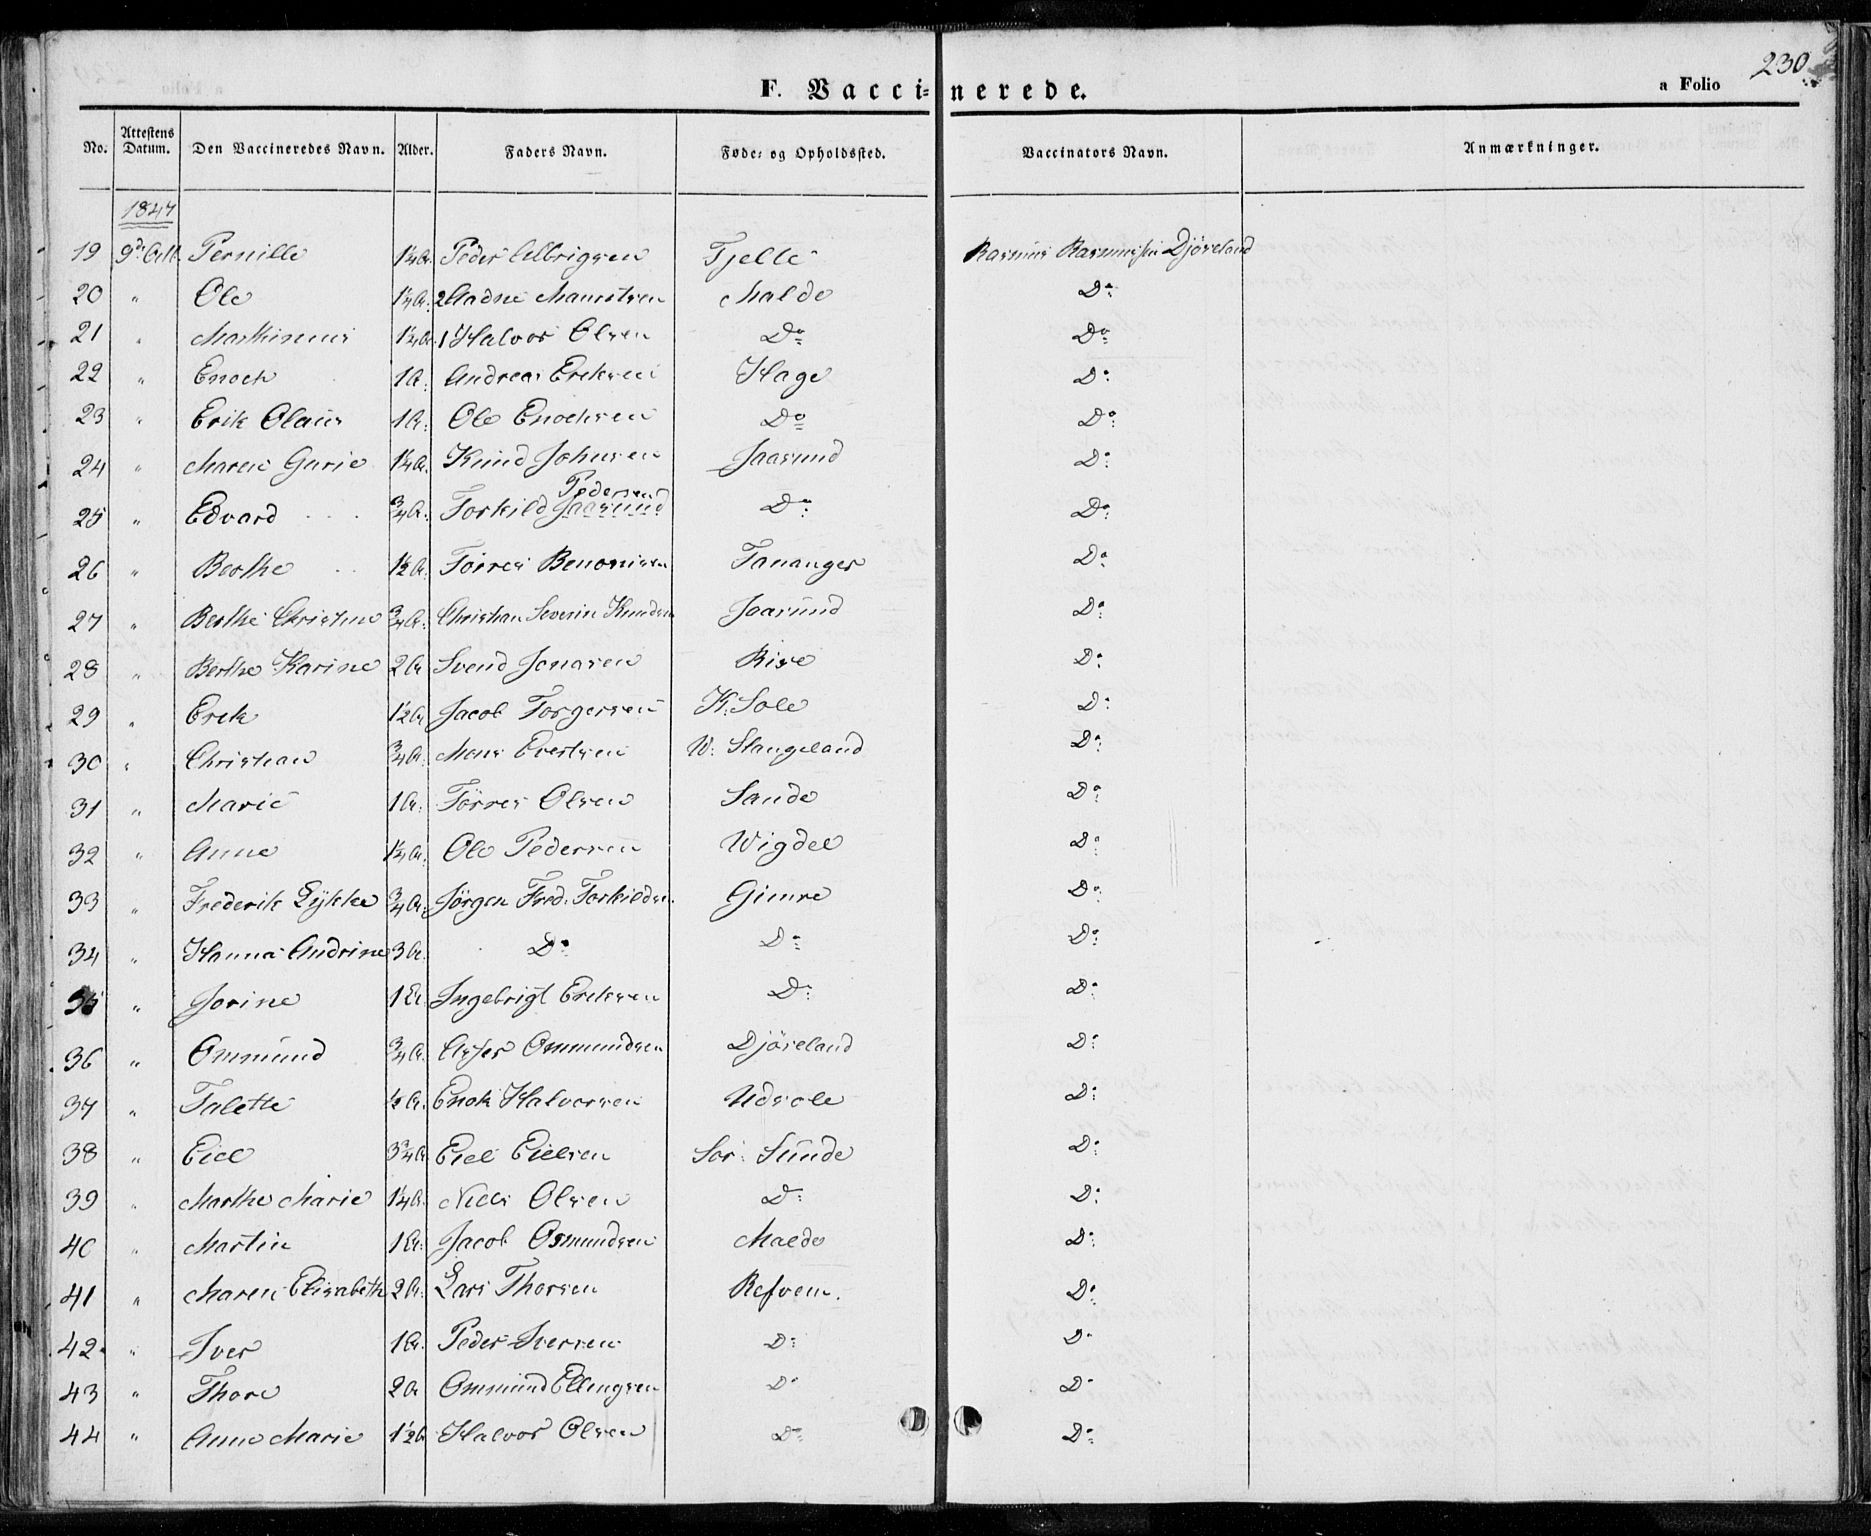 230
F. Vaccinerede.
a Folio
No. Attestens Datum. Den Vaccineredes Navn. Alder. Faders Navn. Føde- og Opholdssted. Vaccinators Navn. Anmærkninger.
1847
19 9de Oct. Pernille 1¼ A. Peder Albrigsen Tjelle Rasmus Rasmussen Djøseland
20 " Ole 1¼ A. 2 Aadne Mauritsen Malde Do
21 " Mathinius 1¼ A. 1 Halvor Olsen Do Do
22 " Enoch 1 A. Andreas Eriksen Hage Do
23 " Erik Olaus 1 A. Ole Enochsen Do Do
24 " Maren Gurie 1¼ A. Knud Johnsen Jaasund Do
25 " Edvard ¾ A. Torkild Pedersen Jaasund Do Do
26 " Berthe 1½ A. Tørres Benonisen Tananger Do
27 " Berthe Christine ¾ A. Christian Severin Knudsen Jaasund Do
28 " Berthe Karine 2 A. Svend Jonasen Rise Do
29 " Erik 1½ A. Jacob Torgersen K. Sole Do
30 " Christian ¾ A. Mons Evertsen W. Stangeland Do
31 " Marie 1 A. Tørres Olsen Sande Do
32 " Anne 1¼ A. Ole Pedersen Wigdel Do
33 " Frederik Lykke ¾ A. Jørgen Fred. Torkildsen Gimre Do
34 " Hanna Andrine 3 A. Do Do Do
35 " Jorine 1 A. Ingebrigt Eriksen Do Do
36 " Ommund ¾ A. Asser Ommundsen Djøseland Do
37 " Talette ½ A. Enok Halvorsen Udsole Do
38 " Eiel 3¾ A. Eiel Eielsen Sør Sunde Do
39 " Marthe Marie 1¼ A. Niels Olsen Do Do
40 " Martin 1 A. Jacob Osmundsen Malde Do
41 " Maren Elisabeth 2 A. Lars Thorsen Refvem. Do
42 " Iver 1 A. Peder Iversen Do Do
43 " Thore 2 A. Ommund Ellingsen Do Do
44 " Anne Marie 1½ A. Halvor Olsen Do Do